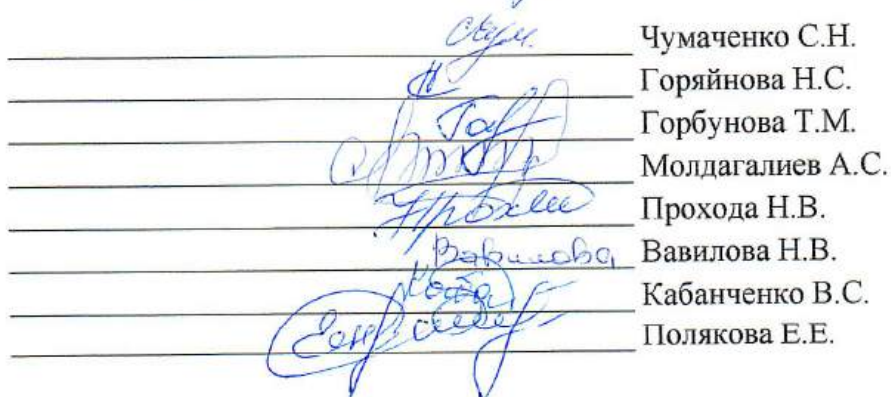 Чумаченко С.Н.
Горяйнова Н.С.
Горбунова Т.М.
Молдагалиев А.С.
Прохода Н.В.
Вавилова Вавилова Н.В.
Кабанченко В.С.
Полякова Е.Е.